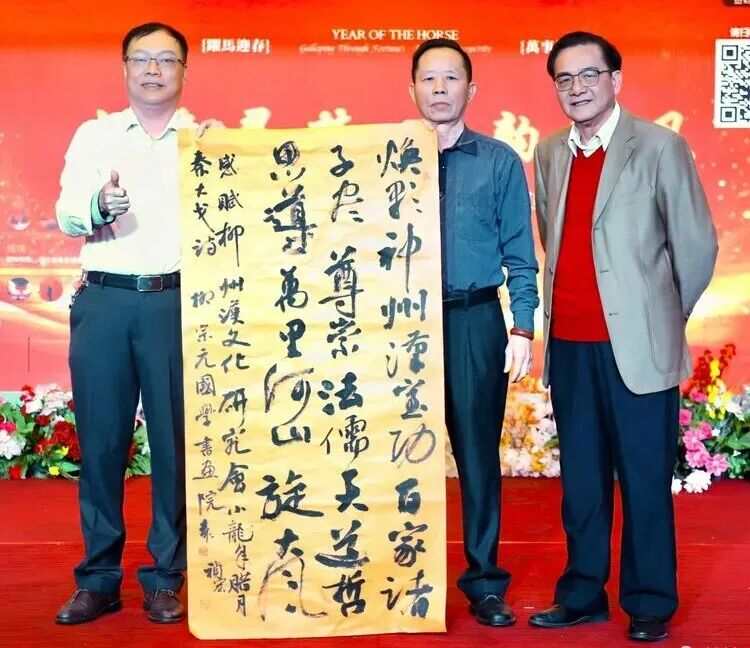 YEAR OF THE HORSE
[躍馬迎春]
Galloping Through Fortune's
[萬事
请扫
焕彩神州漢武功百家诸
子尽尊崇法儒天道哲
思導萬里河山旋大风
感賦柳州漢文化研究會小龍年腊月
秦大戈诗 柳宗元國學書画院